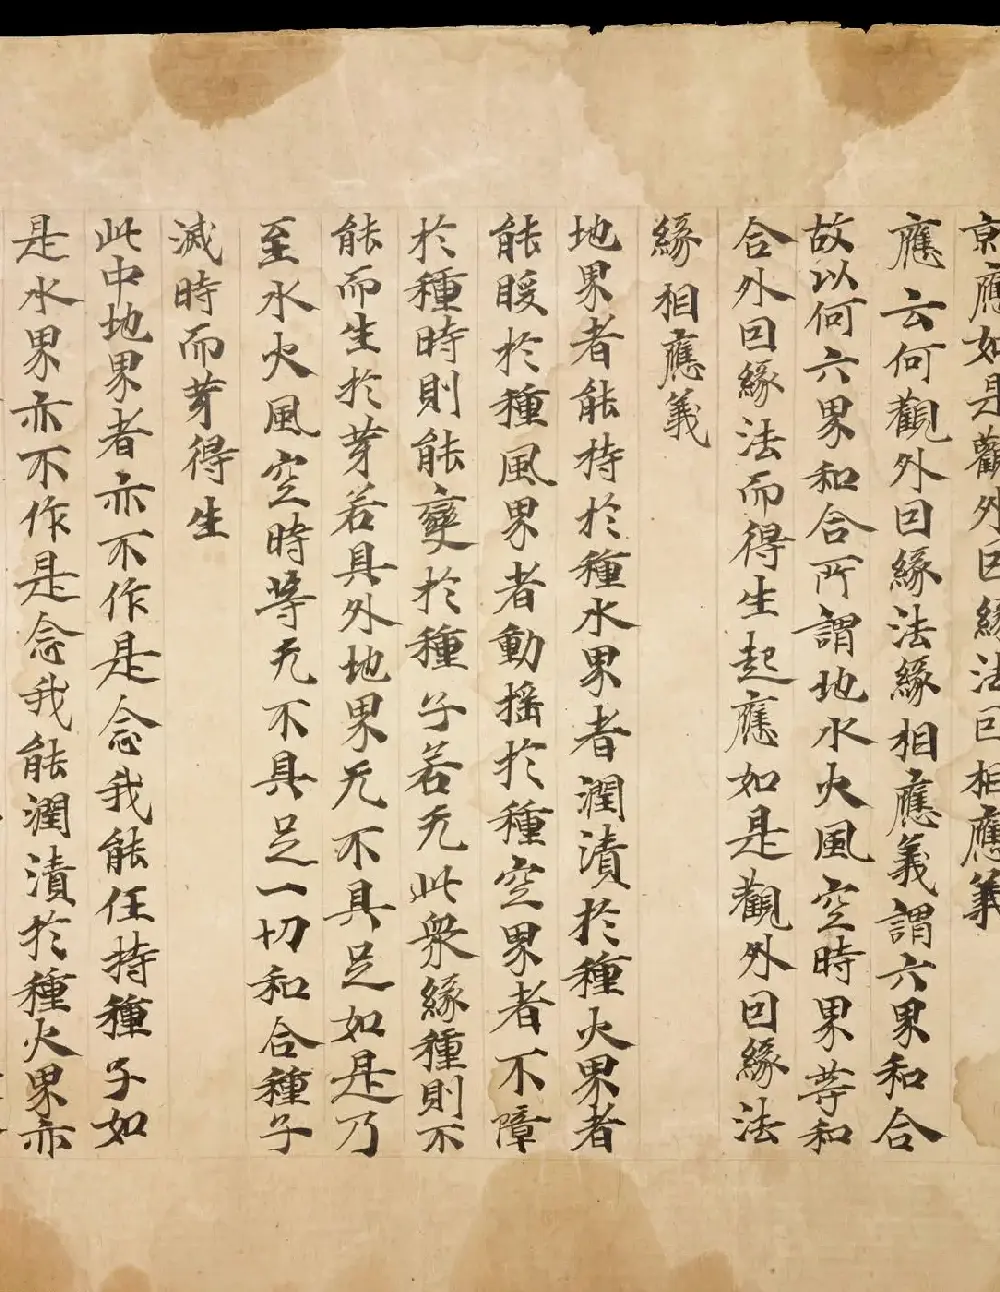 應如是觀外因緣法因相應義
應云何觀外因緣法緣相應義謂六界和合
故以何六界和合所謂地水火風空時界等和
合外因緣法而得生起應如是觀外因緣法
緣相應義
地界者能持於種水界者潤漬於種火界者
能暖於種風界者動搖於種空界者不障
於種時則能變於種子若无此衆緣種則不
能而生於芽若具外地界无不具足如是乃
至水火風空時等无不具足一切和合種子
滅時而芽得生
此中地界者亦不作是念我能任持種子如
是水界亦不作是念我能潤漬於種火界亦